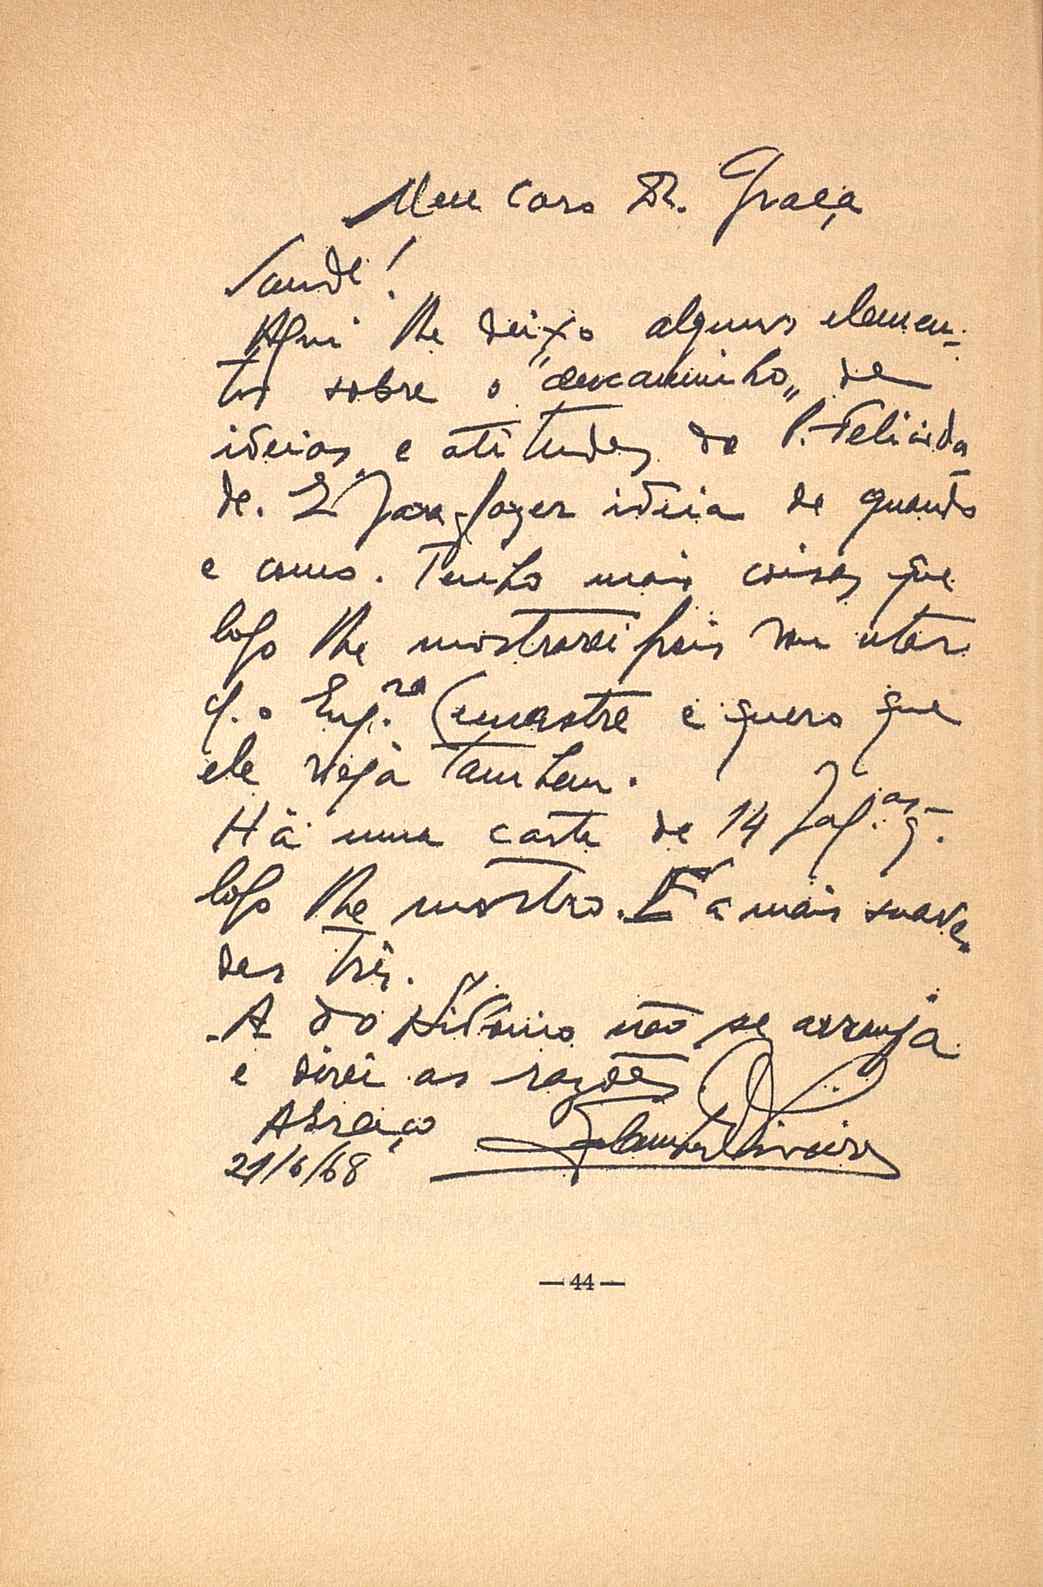 Meu caro Dr. Graça
Saude!
Aqui lhe deixo alguns elemen-
tos sobre o "descaminho" de
ideias e atitudes do P. Felicida-
de. É para fazer ideia de quando
e como. Tenho mais coisas que
logo lhe mostrarei pois vou estar
c. o Eng.ro e quero que
ele veja tambem.
Há uma carta de 14 pág.as q.
logo lhe mostro. É a mais suave
das três.
A do não se arranja
e direi as razões.
Abraço
21/6/68
— 44 —